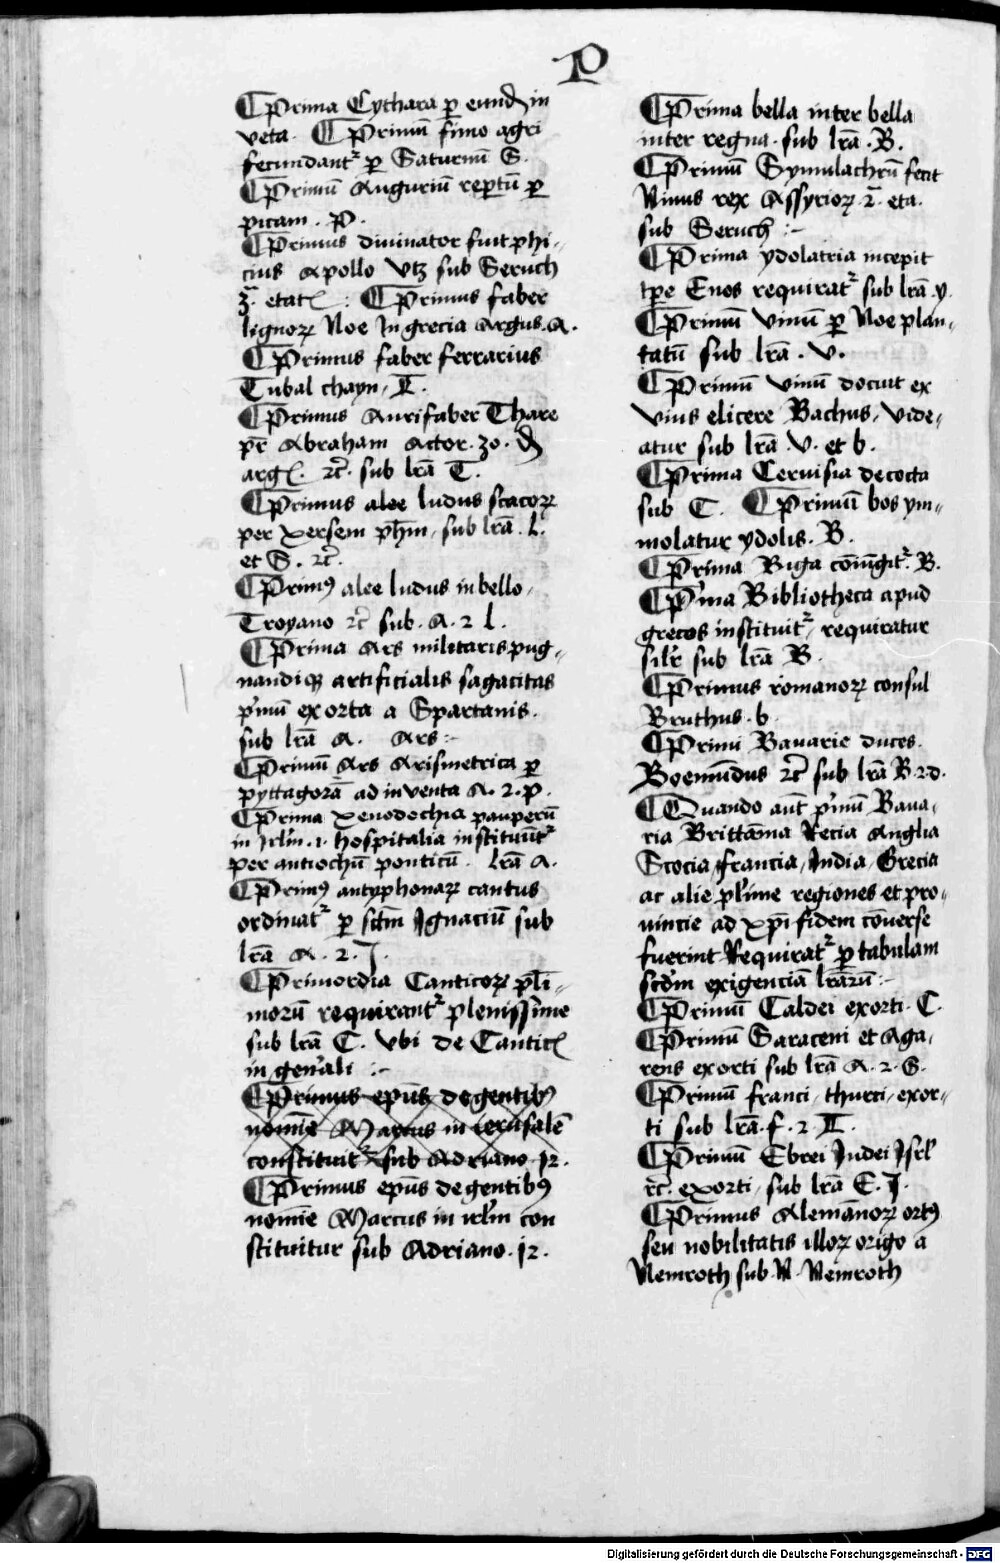 P
¶ Prima Cythara ꝑ eund̄ in
veta. ¶ Primū fimo agri
fecundantᷣ ꝑ Saturnū S.
¶ Primū Auguriū reꝑtū ꝑ
picam. P.
¶ Primus diuinator fuit phi-
cius Apollo vtz sub Seruch
3ͣ. etatꝭ :. ¶ Primus faber
lignoꝝ Noe In grecia Argus. A.
¶ Primus faber ferrarius
Tubal chayn. T.
¶ Primus Aurifaber Thare
pr̄ Abraham Actor. 30. d̄
argꝭ. ⁊c̄. sub lr̄a T.
¶ Primus alee ludus scacoꝝ
per Xersem ph̄m, sub lr̄a. L.
et S. ⁊c̄.
¶ Primꝰ alee ludus in bello
Troyano ⁊c̄ sub. A. ⁊ l.
¶ Prima Ars militaris pug-
nandiqꝫ artificialis sagacitas
pͥmū exorta a Spartanis.
sub lr̄a A. Ars :-
¶ Primū Ars Arismetrica ꝑ
pyttagorā ad inventa A. ⁊. p.
¶ Prima xenodochia pauperū
in Irlm̄ .i. hospitalia instituūtᷣ
per antiochū ponticū. lr̄a A.
¶ Primꝰ antyphonaꝝ cantus
ordinatᷣ ꝑ sc̄tm Ignaciū sub
lr̄a A. ⁊. I.
¶ Primordia Canticoꝝ pl̄i-
morū requirantᷣ plenissime
sub lr̄a C. vbi de Canticꝭ
in gen̄ali :-
¶ Primus epūs de gentibꝰ
nomīe Marcus in ierusalē
constituitᷣ sub Adriano. 12.
¶ Primus epūs de gentibꝰ
nomīe Marcus in irl̄m con
stituitur sub Adriano. 12.
¶ Prima bella inter bella
inter regna. sub lr̄a. B.
¶ Primū Symulachrū fecit
Ninus rex Assyrioꝝ. 2ͣ. eta.
sub Seruch :-
¶ Prima ydolatria incepit
tp̄e Enos requiratᷣ sub lr̄a y.
¶ Primū vinū ꝑ Noe plan-
tatū sub lr̄a. V.
¶ Primū vinū docuit ex
vuis elicere Bachus, vide-
atur sub lr̄a V. et b.
¶ Prima Cervisia decocta
sub C. ¶ Primū bos ym-
molatur ydolis. B.
¶ Prima Biga cōiūgitᷣ. B.
¶ Pͥma Bibliotheca apud
grecos instituitᷣ, requiratur
sil̄r sub lr̄a B.
¶ Primus romanoꝝ consul
Bruthus. b.
¶ Primi Bauarie duces.
Boemūdus ⁊c̄ sub lr̄a B ⁊ d.
¶ Quando aūt pͥmū Baua-
ria Brittānia Recia Anglia
Scocia, francia, India, Grecia
ac alie pl̄ime regiones et pro-
vincie ad xp̄i fidem cōuerse
fuerint Requiratᷣ ꝑ tabulam
scd̄m exigenciā lr̄arū :-
¶ Primū Caldei exorti. C.
¶ Primū Saraceni et Aga-
rens exorti sub lr̄a A. ⁊. S.
¶ Primū franci, thurci, exor-
ti sub lr̄a. f. ⁊. T.
¶ Primū Ebrei Iudei Isrl̄
⁊c̄. exorti, sub lr̄a E. I.
¶ Primus Alemānoꝝ ortꝰ
seu nobilitatis illoꝝ origo a
Nemroth sub. N. Nemroth
Digitalisierung gefördert durch die Deutsche Forschungsgemeinschaft - DFG